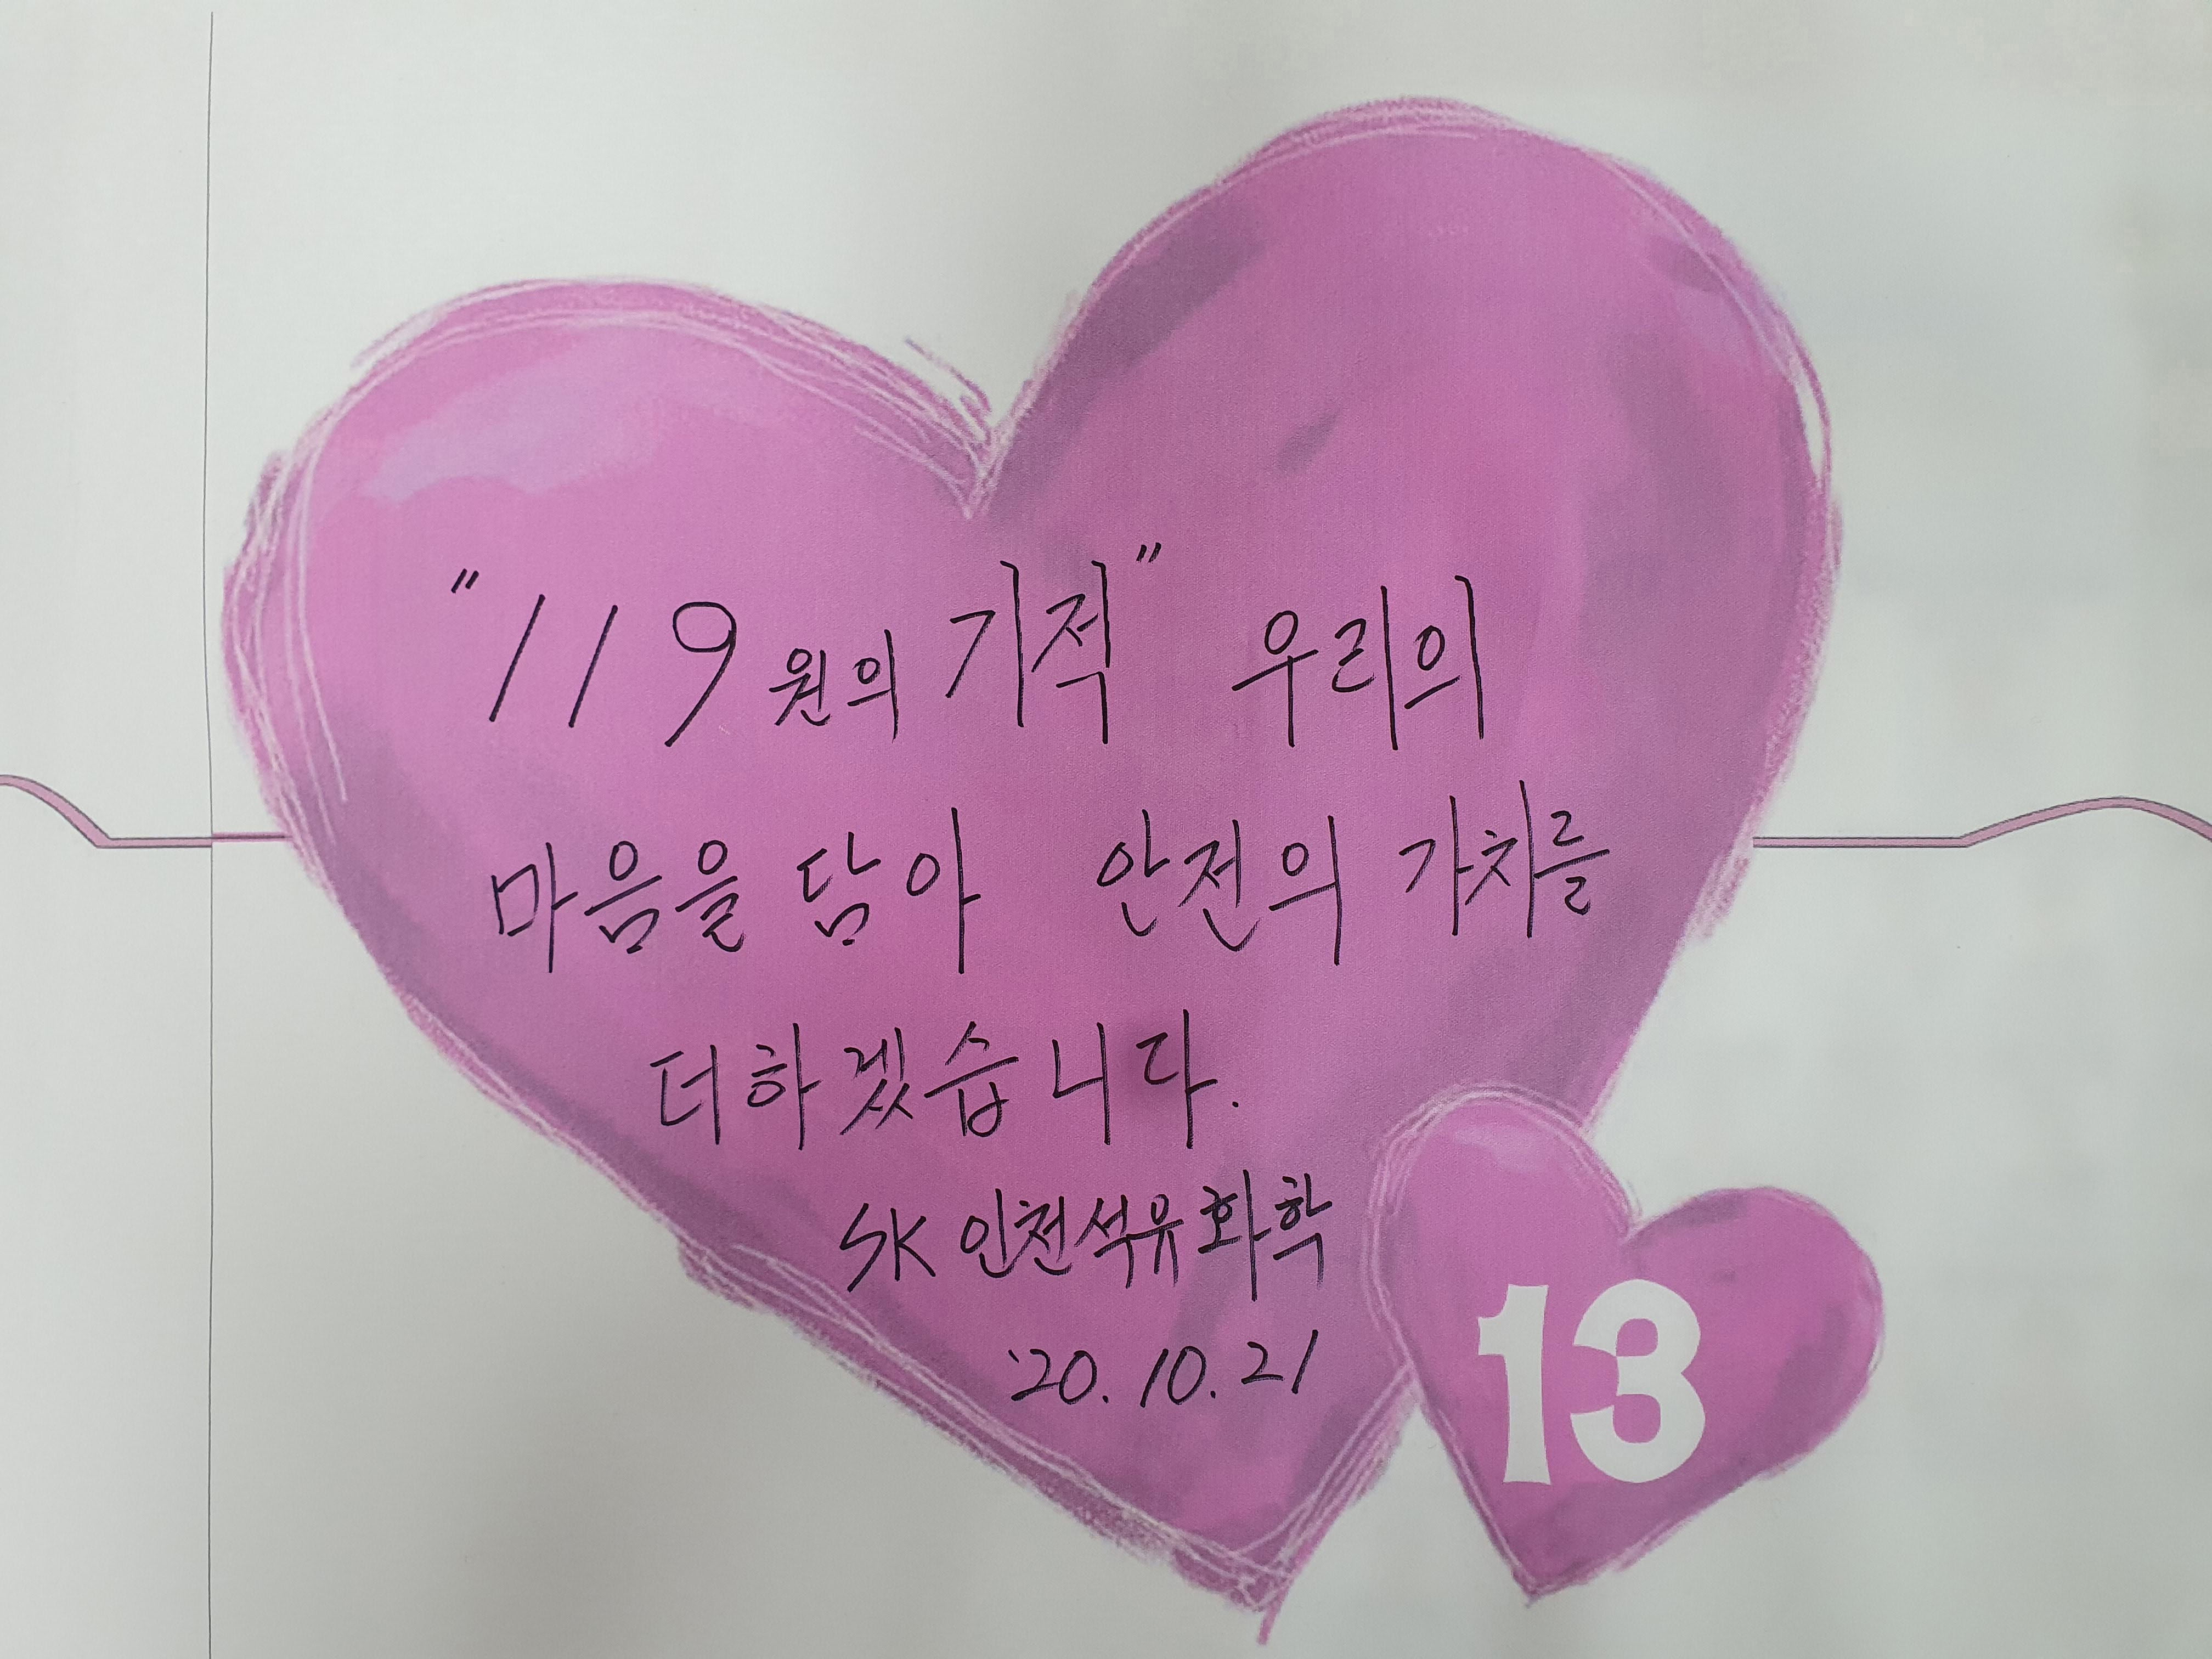 "119원의 기적" 우리의
마음을 담아 안전의 가치를
더하겠습니다.
SK 인천석유화학
'20. 10. 21
13